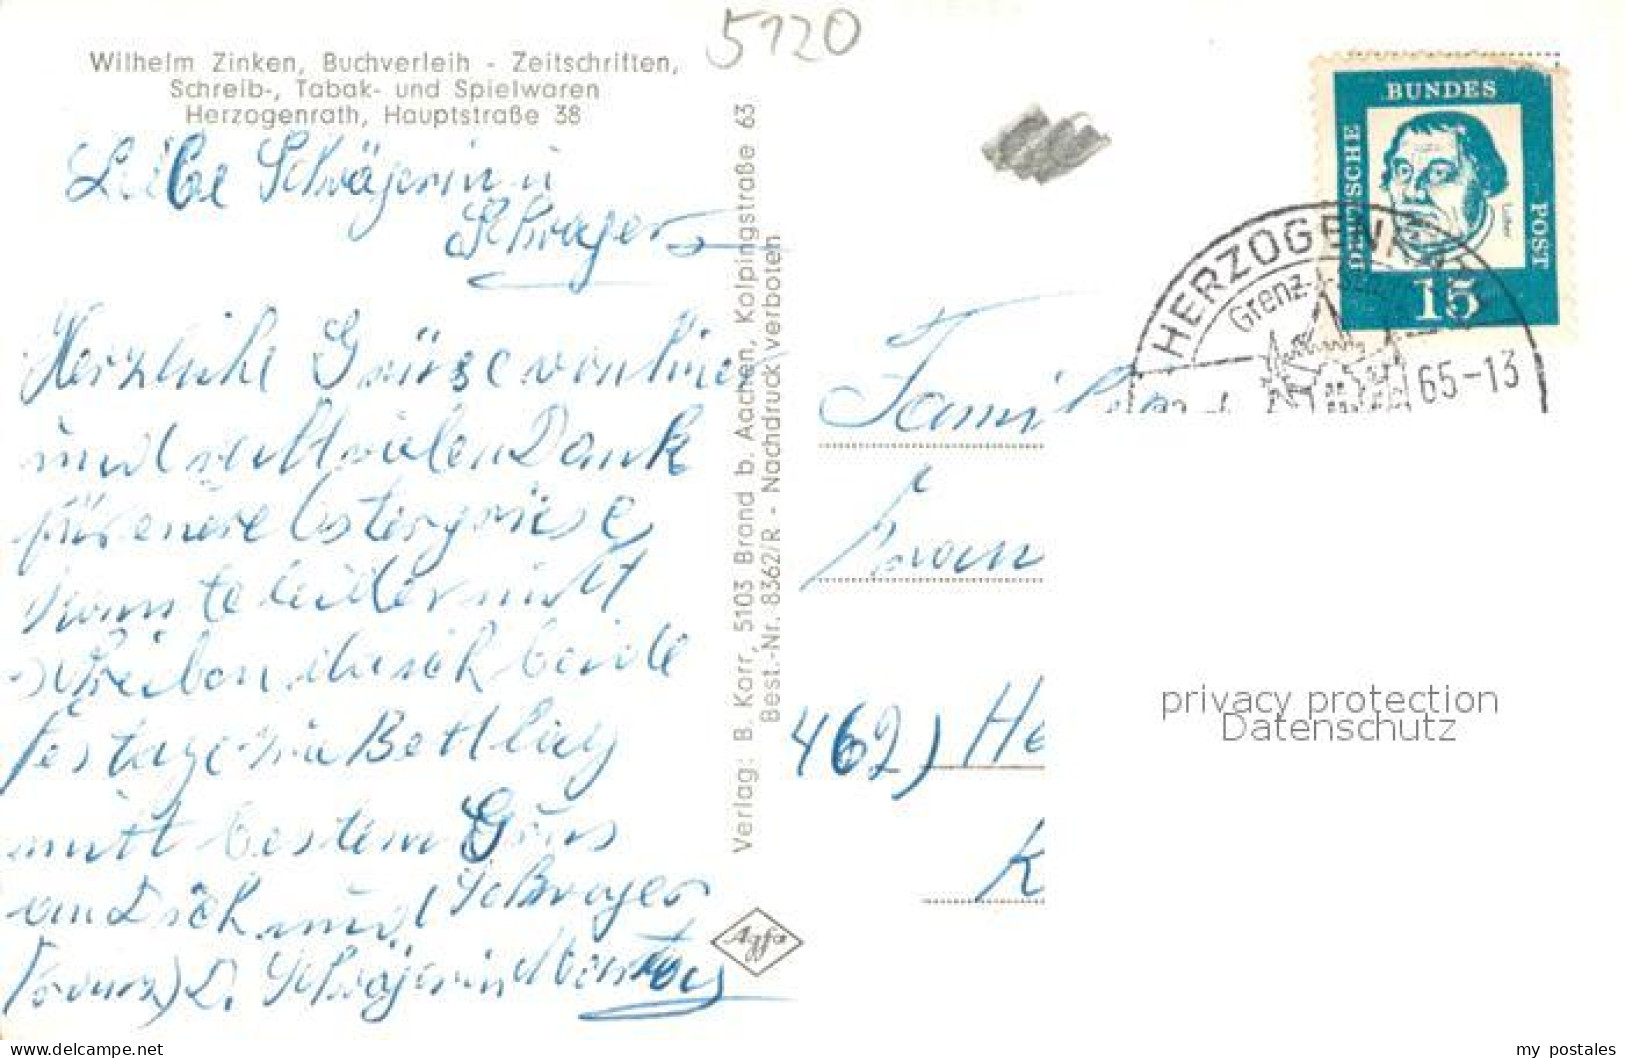 5120
Wilhelm Zinken, Buchverleih - Zeitschriften,
Schreib-, Tabak- und Spielwaren
Herzogenrath, Hauptstraße 38
Liebe Schwägerin u
Schwager
Herzliche Grüse von hir
und recht vielen Dank
für eure Ostergrüse
konnte leider nicht
schreiben da ich beide
Festage im Bett lag
mitt bestem Grus
an Dich und Schwager
Franz) D. Schwägerin
Verlag: B. Karr, 5103 Brand b. Aachen, Kolpingstraße 63
Best.-Nr. 8362/R - Nachdruck verboten
Agfa
DEUTSCHE
BUNDES
POST
Luther
15
HERZOGENRATH
Grenz-
65-13
Famil
Fran
462) He
K
privacy protection
Datenschutz
delcampe.net
my_postales